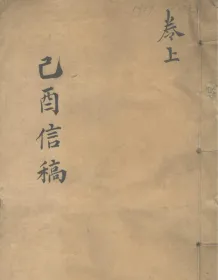 卷上
己酉信稿